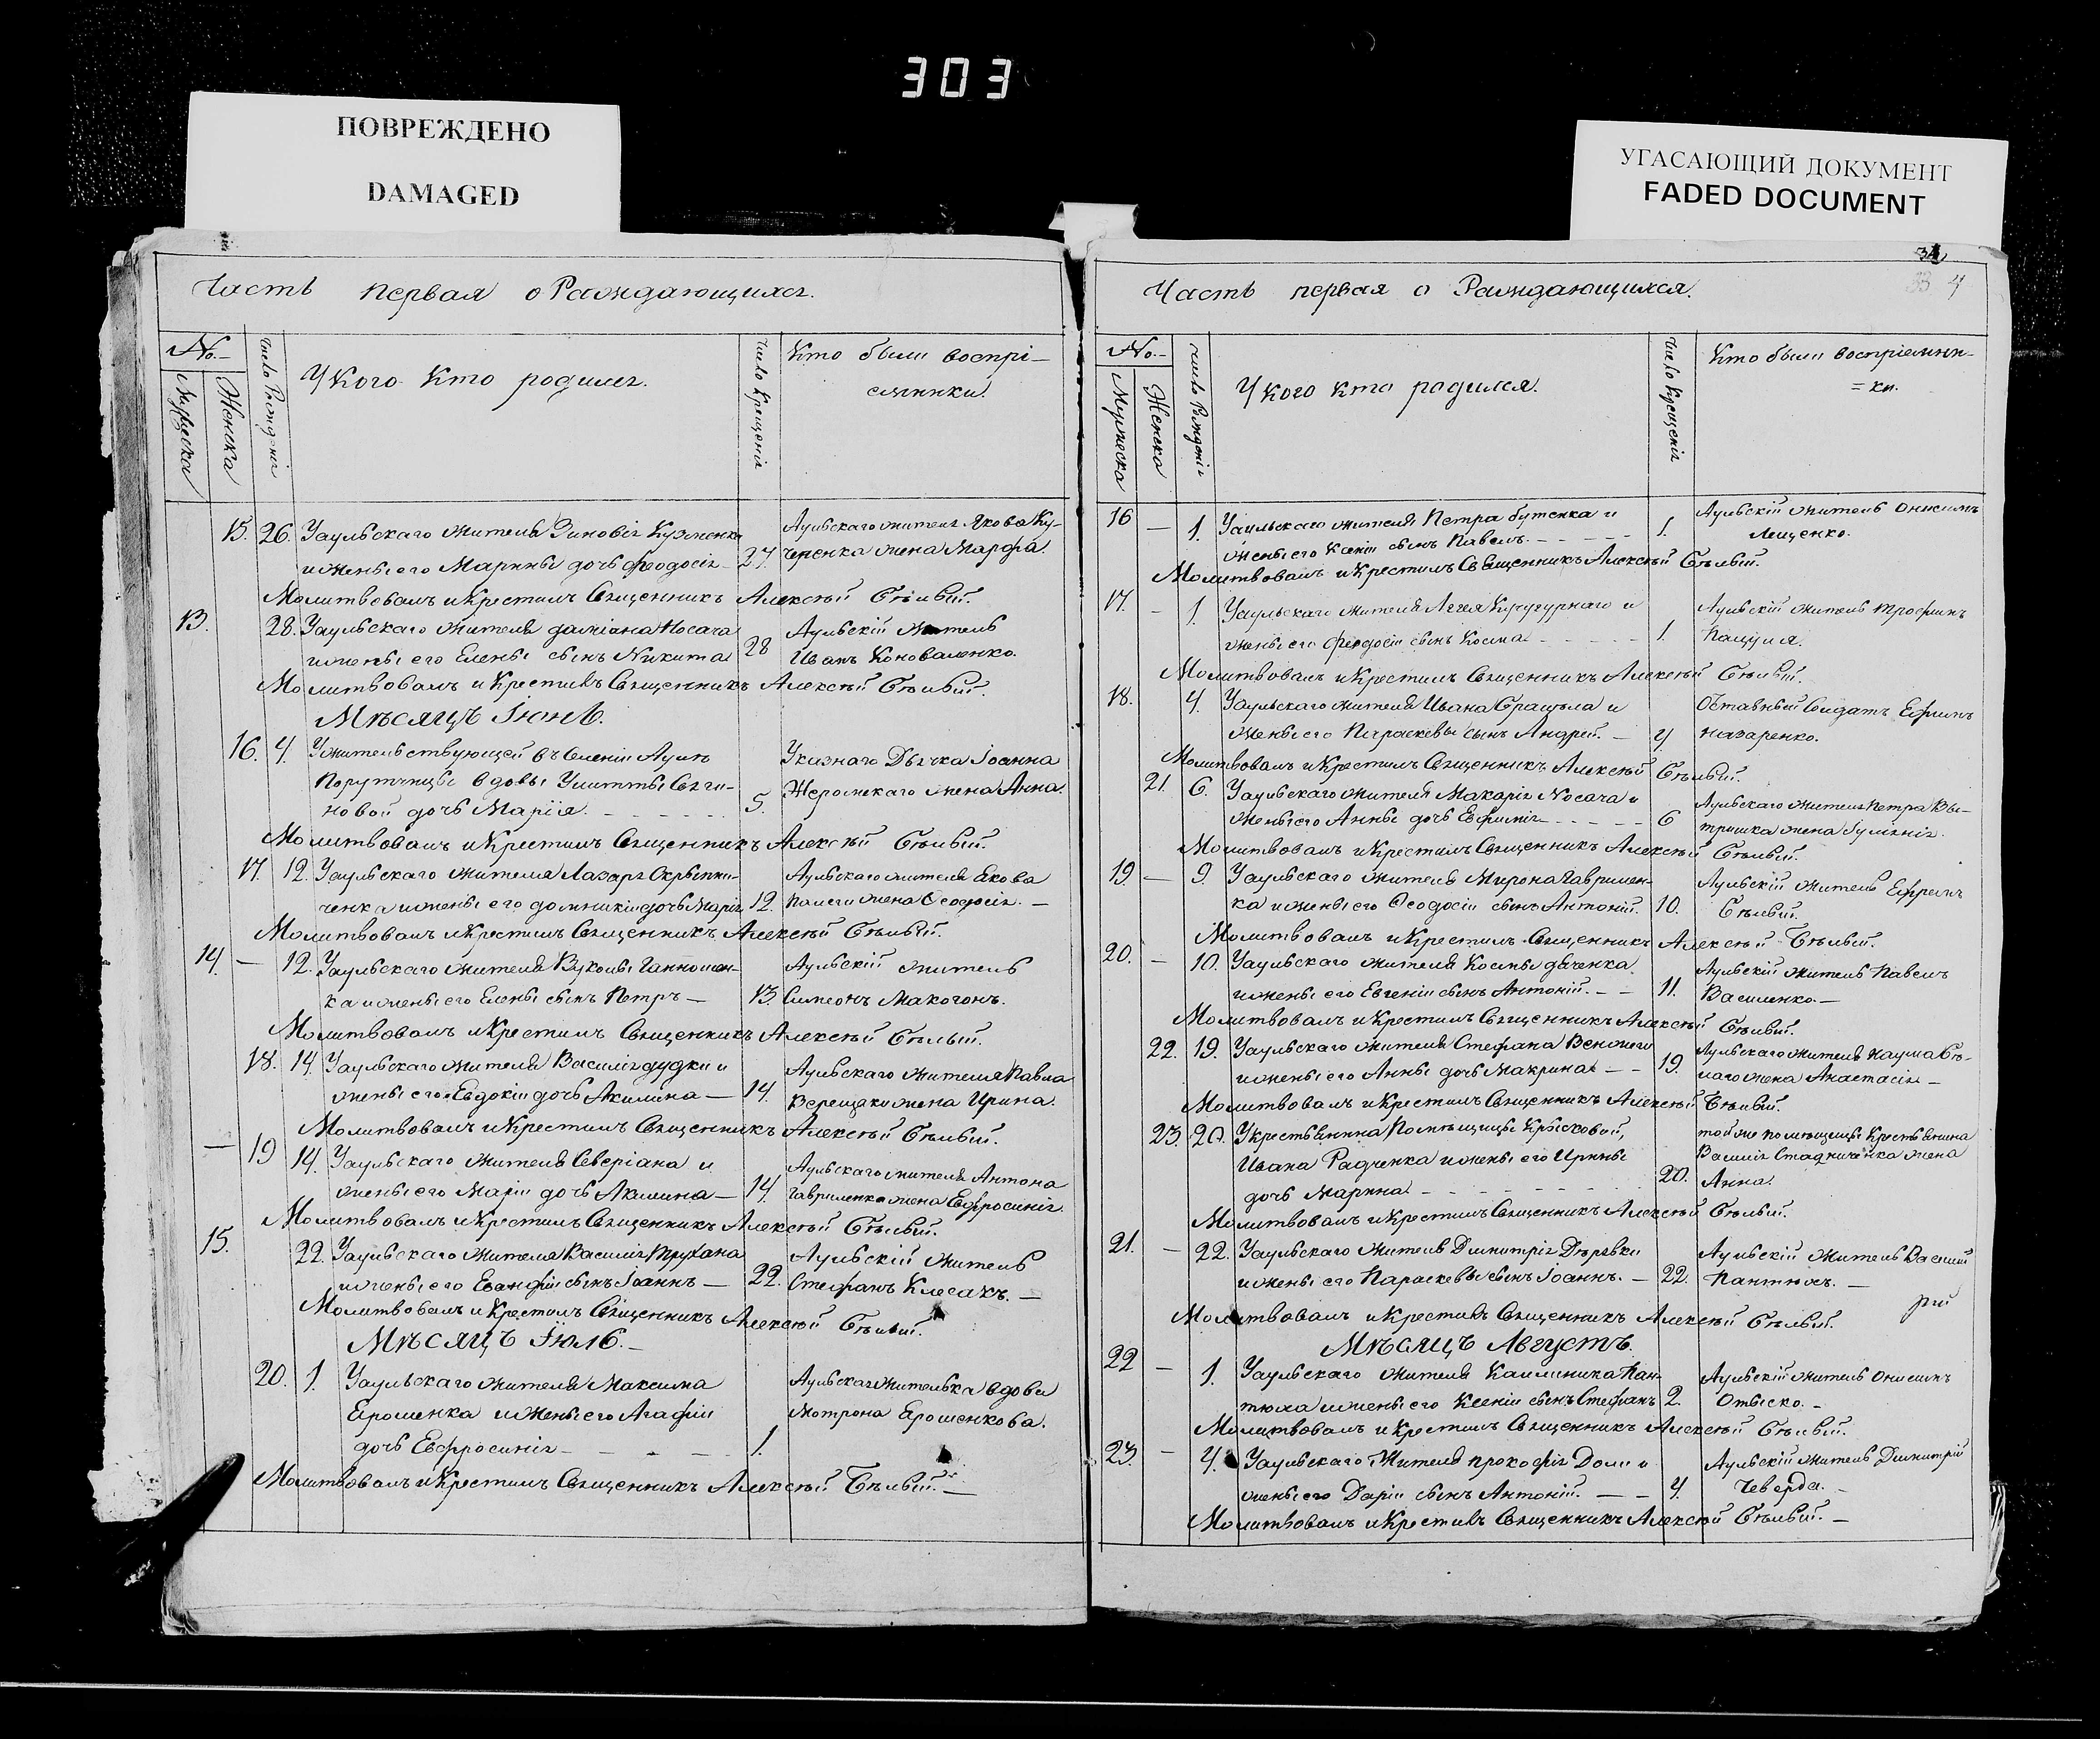 303
ПОВРЕЖДЕНО
DAMAGED
УГАСАЮЩИЙ ДОКУМЕНТ
FADED DOCUMENT
Часть первая о Раждающихся.
No.
Мужеска
Женска
число Рождения
У кого кто родился.
число Крещения
Кто были воспрі-
емники.
15. 26. У аульскаго жителя Зиновія Кузменка
и жены его Марины дочь Феодосія 27. Аульскаго жителя Якова Ку-
черенка жена Марфа.
Молитвовалъ и Крестилъ Священникъ Алексѣй Бѣлый.
13. 28. У аульскаго жителя Даміана Носача
и жены его Елены сынъ Никита 28 Аульскій житель
Иванъ Коноваленко.
Молитвовалъ и Крестилъ Священникъ Алексѣй Бѣлый.
Мѣсяцъ Іюнь.
16. 4. У жительствующей въ селеніи Аулъ
Порутчицы вдовы
новой дочь Марія. 5. Указнаго Дьячка Іоанна
Жеромскаго жена Анна.
Молитвовалъ и Крестилъ Священникъ Алексѣй Бѣлый.
17. 12. У аульскаго жителя Лазаря Скрыпни-
ченка и жены его Домникіи дочь Марія 12. Аульскаго жителя Якова
жена Ѳеодосія. —
Молитвовалъ и Крестилъ Священникъ Алексѣй Бѣлый.
14. — 12. У аульскаго жителя Вуколы
ка и жены его Елены сынъ Петръ — 13. Аульскій житель
Симеонъ Макогонъ.
Молитвовалъ и Крестилъ Священникъ Алексѣй Бѣлый.
18. 14. У аульскаго жителя Василія Дудки и
жены его Евдокіи дочь Акилина — 14. Аульскаго жителя Павла
Верещаки жена Ирина.
Молитвовалъ и Крестилъ Священникъ Алексѣй Бѣлый.
— 19 14. У аульскаго жителя Северіана и
жены его Маріи дочь Акилина — 14. Аульскаго жителя Антона
Гавриленка жена Евфросинія.
Молитвовалъ и Крестилъ Священникъ Алексѣй Бѣлый.
15. 22. У аульскаго жителя Василія Трухана
и жены его сынъ Іоаннъ — 22. Аульскій житель
Стефанъ Клесакъ. —
Молитвовалъ и Крестилъ Священникъ Алексѣй Бѣлый.
Мѣсяцъ Іюль. —
20. 1. У аульскаго жителя Максима
Ерошенка и жены его Агафіи
дочь Евфросинія — 1. Аульская жителька вдова
Мотрона Ерошенкова.
Молитвовалъ и Крестилъ Священникъ Алексѣй Бѣлый. —
34
33 4
Часть первая о Раждающихся.
No.
Мужеска
Женска
число Рожденія
У кого кто родился.
число Крещенія
Кто были воспріемни-
= ки.
16 — 1. У аульскаго жителя Петра Бутенка и
жены его Ксеніи сынъ Павелъ. — 1. Аульскій житель Онисимъ
Лещенко.
Молитвовалъ и Крестилъ Священникъ Алексѣй Бѣлый.
17. — 1. У аульскаго жителя Аггея Кугурнаго и
жены его Феодосіи сынъ Косма — 1. Аульскій житель Трофимъ
Пацуля.
Молитвовалъ и Крестилъ Священникъ Алексѣй Бѣлый.
18. 4. У аульскаго жителя Ивана и
жены его Параскевы сынъ Андрей. — 4 Отставный Солдатъ Ефимъ
Назаренко.
Молитвовалъ и Крестилъ Священникъ Алексѣй Бѣлый.
21. 6. У аульскаго жителя Макарія Носача и
жены его Анны дочь Евфимія — 6 Аульскаго жителя Петра
жена Іуліанія.
Молитвовалъ и Крестилъ Священникъ Алексѣй Бѣлый.
19. — 9. У аульскаго жителя Мирона Гаврилен-
ка и жены его Ѳеодосіи сынъ Антоній. 10. Аульскій житель Ефремъ
Бѣлый.
Молитвовалъ и Крестилъ Священникъ Алексѣй Бѣлый.
20. — 10. У аульскаго жителя Космы Дяченка
и жены его Евгеніи сынъ Антоній. — 11. Аульскій житель Павелъ
Василенко. —
Молитвовалъ и Крестилъ Священникъ Алексѣй Бѣлый.
22. 19. У аульскаго жителя Стефана
и жены его Анны дочь Макрина — 19. Аульскаго жителя Наума Бѣ-
лаго жена Анастасія —
Молитвовалъ и Крестилъ Священникъ Алексѣй Бѣлый.
23. 20. У крестьянина Помѣщицы Крыжковой,
Ивана Радченка и жены его Ирины
дочь Марина — 20. той же помѣщицы Крестьянина
Василія Стадниченка жена
Анна.
Молитвовалъ и Крестилъ Священникъ Алексѣй Бѣлый.
21. — 22. У аульскаго жителя Димитрія Деревки
и жены его Параскевы сынъ Іоаннъ. — 22. Аульскій житель Василій
Пантюхъ. —
Молитвовалъ и Крестилъ Священникъ Алексѣй Бѣлый.
Мѣсяцъ Августъ.
22 — 1. У аульскаго жителя Каллиника Пан-
тюха и жены его Ксеніи сынъ Стефанъ 2. Аульскій житель Онисимъ
Молитвовалъ и Крестилъ Священникъ Алексѣй Бѣлый.
23. — 4. У аульскаго жителя Прокофія Доли и
жены его Даріи сынъ Антоній. — 4. Аульскій житель Димитрій
Чеверда. —
Молитвовалъ и Крестилъ Священникъ Алексѣй Бѣлый. —